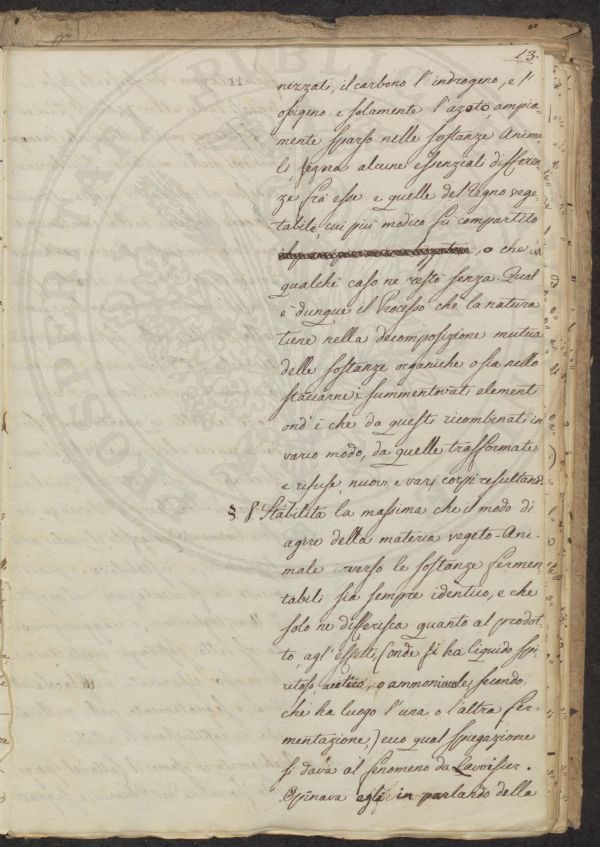 13.
nizzati, il carbono l'indrogeno, e l'
ossigeno e solamente l'azoto, ampia-
mente sparso nelle sostanze Anima
li, segna alcune essenziali differen
ze frà esse e quelle del Regno vege-
tabile, cui più modico fù compartito
, o che in
qualche caso ne restò senza. Qual
è dunque il Processo che la natura
tiene nella decomposizione mutua
delle sostanze organiche o sia nello
staccarne i summentovati elementi
ond'è che da questi ricombinati in
vario modo, da quelle trasformate
e rifuse, nuovi, e vari corpi resultano.
§. 8. Stabilita la massima che il modo di
agire della materia vegeto-Ani-
male verso le sostanze fermen
tabili sia sempre identico, e che
solo ne differisca quanto al prodot
to, agl'effetti, (onde si ha liquido spi
ritoso acetico, o ammoniacale, secondo
che ha luogo l'una, o l'altra fer-
mentazione,) ecco qual spegazione
si dava al fenomeno da Lavoisier.
Opinava egli in parlando della
PROSPERITATI PUBLICAE